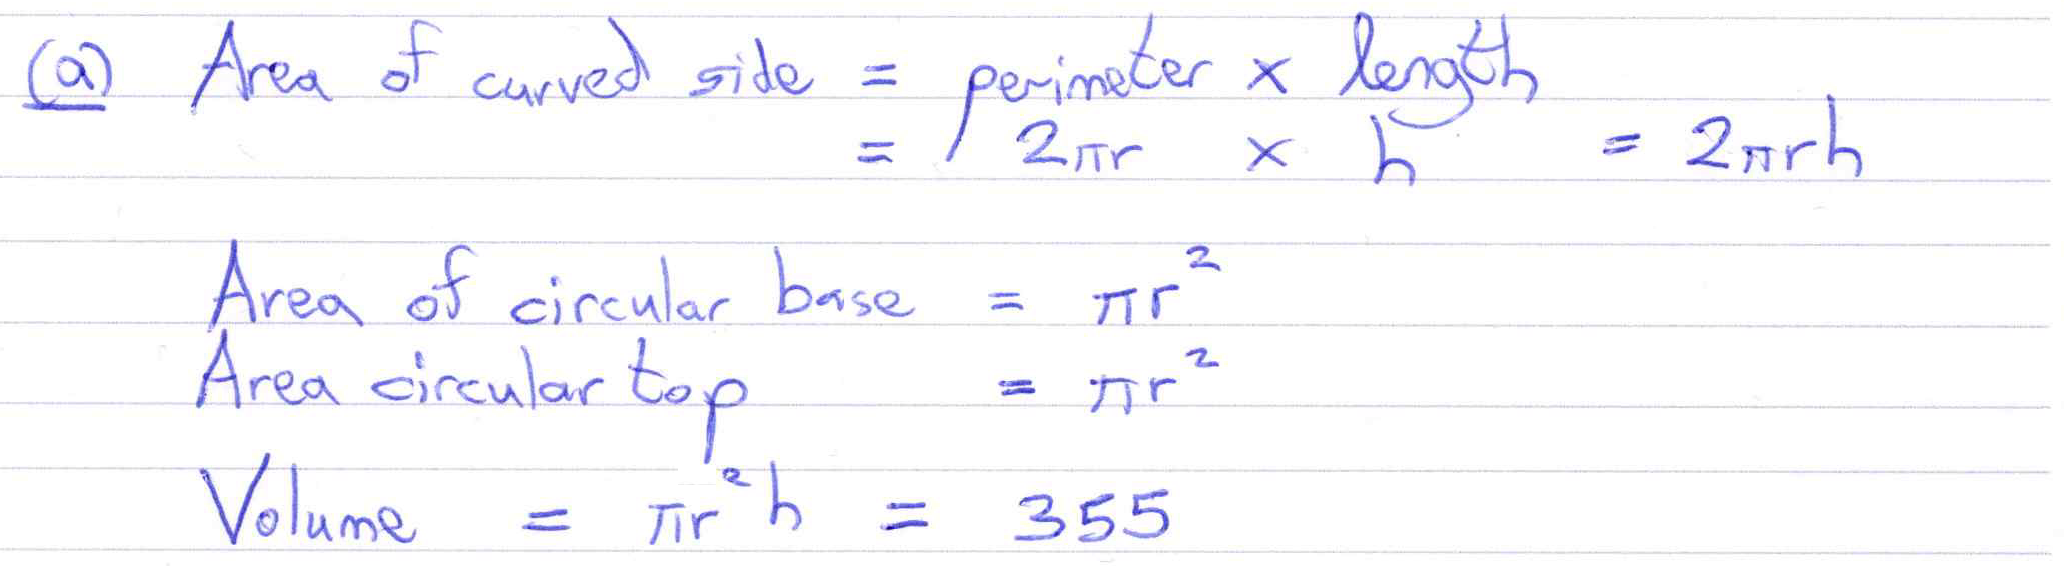 (a) Area of curved side = perimeter × length
= 2πr × h = 2πrh
Area of circular base = πr²
Area circular top = πr²
Volume = πr²h = 355